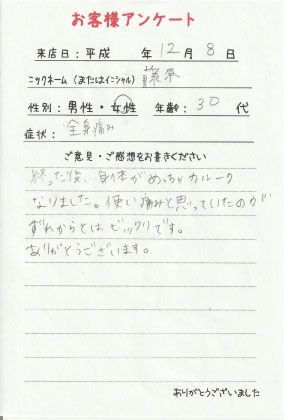 お客様アンケート
来店日：平成 年 12 月 8 日
ニックネーム（またはイニシャル）
性別：男性・女性 年齢：30 代
症状：全身痛み
ご意見・ご感想をお書きください
終った後、身体がめっちゃカルーク
なりました。使い痛みと思っていたのが
ずれからとは ビックリです。
ありがとうございます。
ありがとうございました